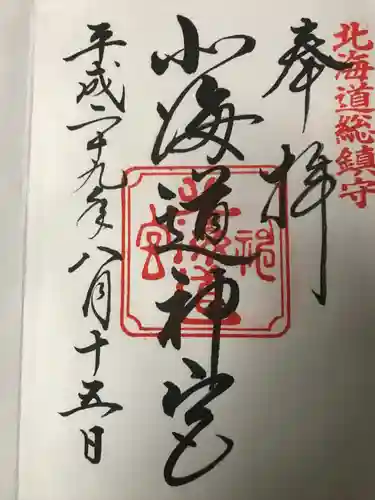 北海道総鎮守
奉拝
北海道神宮
平成二十九年八月十五日